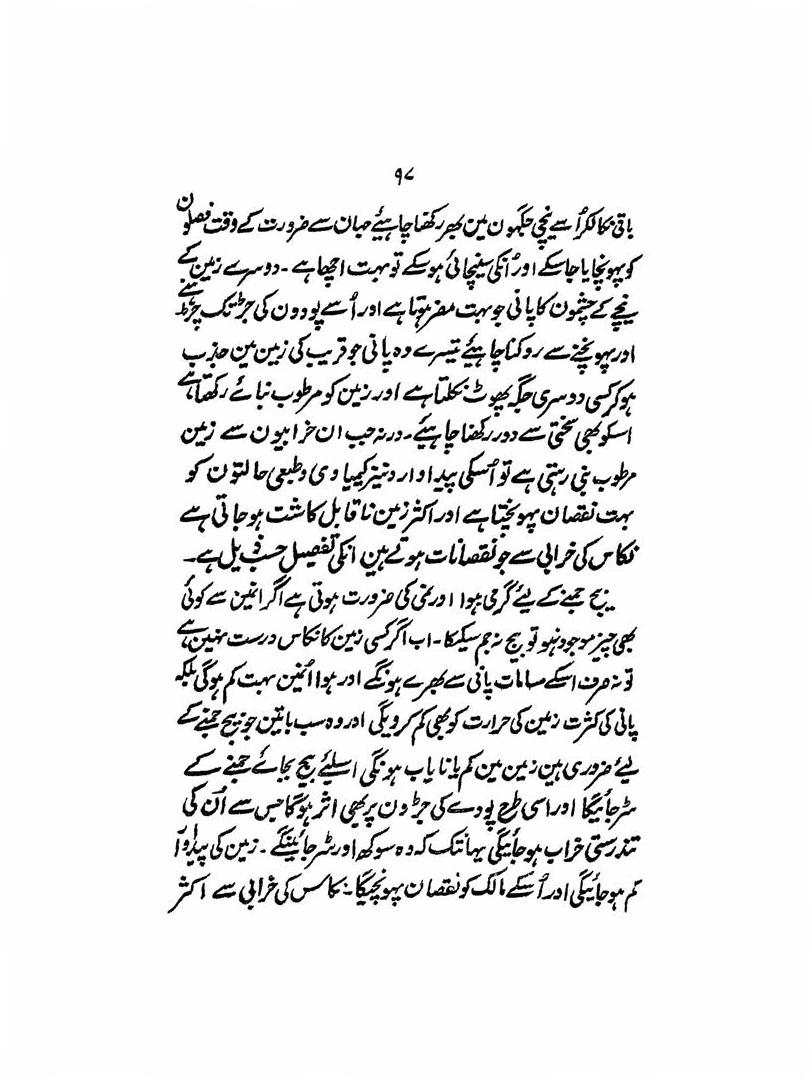 ۹۷
باقی نکالکر اُسے نیچی جگہون مین بھر رکھنا چاہئیے جہان سے ضرورت کے وقت فصلون
کو پہونچایا جاسکے اور اُنکی سینچائی ہوسکے تو بہت اچھا ہے ۔ دوسرے زمین کے
نیچے کے چشمون کا پانی جو بہت مضر ہوتا ہے اور اُسے پودون کی جڑ تک چڑھنے
اور پہونچنے سے روکنا چاہئیے تیسرے وہ پانی جو قریب کی زمین مین جذب
ہوکر کسی دوسری جگہ پھوٹ نکلتا ہے اور زمین کو مرطوب بنائے رکھتا ہے
اسکو بھی سختی سے دور رکھنا چاہئیے ۔ ورنہ جب ان خرابیون سے زمین
مرطوب بنی رہتی ہے تو اُسکی پیداوار و نیز کیمیاوی و طبعی حالتون کو
بہت نقصان پہونچتا ہے اور اکثر زمین ناقابل کاشت ہوجاتی ہے
نکاس کی خرابی سے جو نقصانات ہوتے ہین انکی تفصیل حسب ذیل ہے ۔
بیج جمنے کے لیئے گرمی ہوا اور نمی کی ضرورت ہوتی ہے اگر انمین سے کوئی
بھی چیز موجود نہو تو بیج نہ جم سیکگا ۔ اب اگر کسی زمین کا نکاس درست نہین ہے
تو نہ صرف اسکے مسامات پانی سے بھرے ہونگے اور ہوا اُنمین بہت کم ہوگی بلکہ
پانی کی کثرت زمین کی حرارت کو بھی کم کردیگی اور وہ سب باتین جو بیج جمنے کے
لیئے ضروری ہین زمین مین کم یا نایاب ہونگی اسلیئے بیج بجائے جمنے کے
سڑ جائیگا اور اسی طرح پودے کی جڑون پر بھی اثر ہوگا جس سے اُن کی
تندرستی خراب ہوجائیگی یہانتک کہ وہ سوکھ اور سڑ جائینگے ۔ زمین کی پیداوار
کم ہوجائیگی اور اُسکے مالک کو نقصان پہونچیگا ۔ نکاس کی خرابی سے اکثر